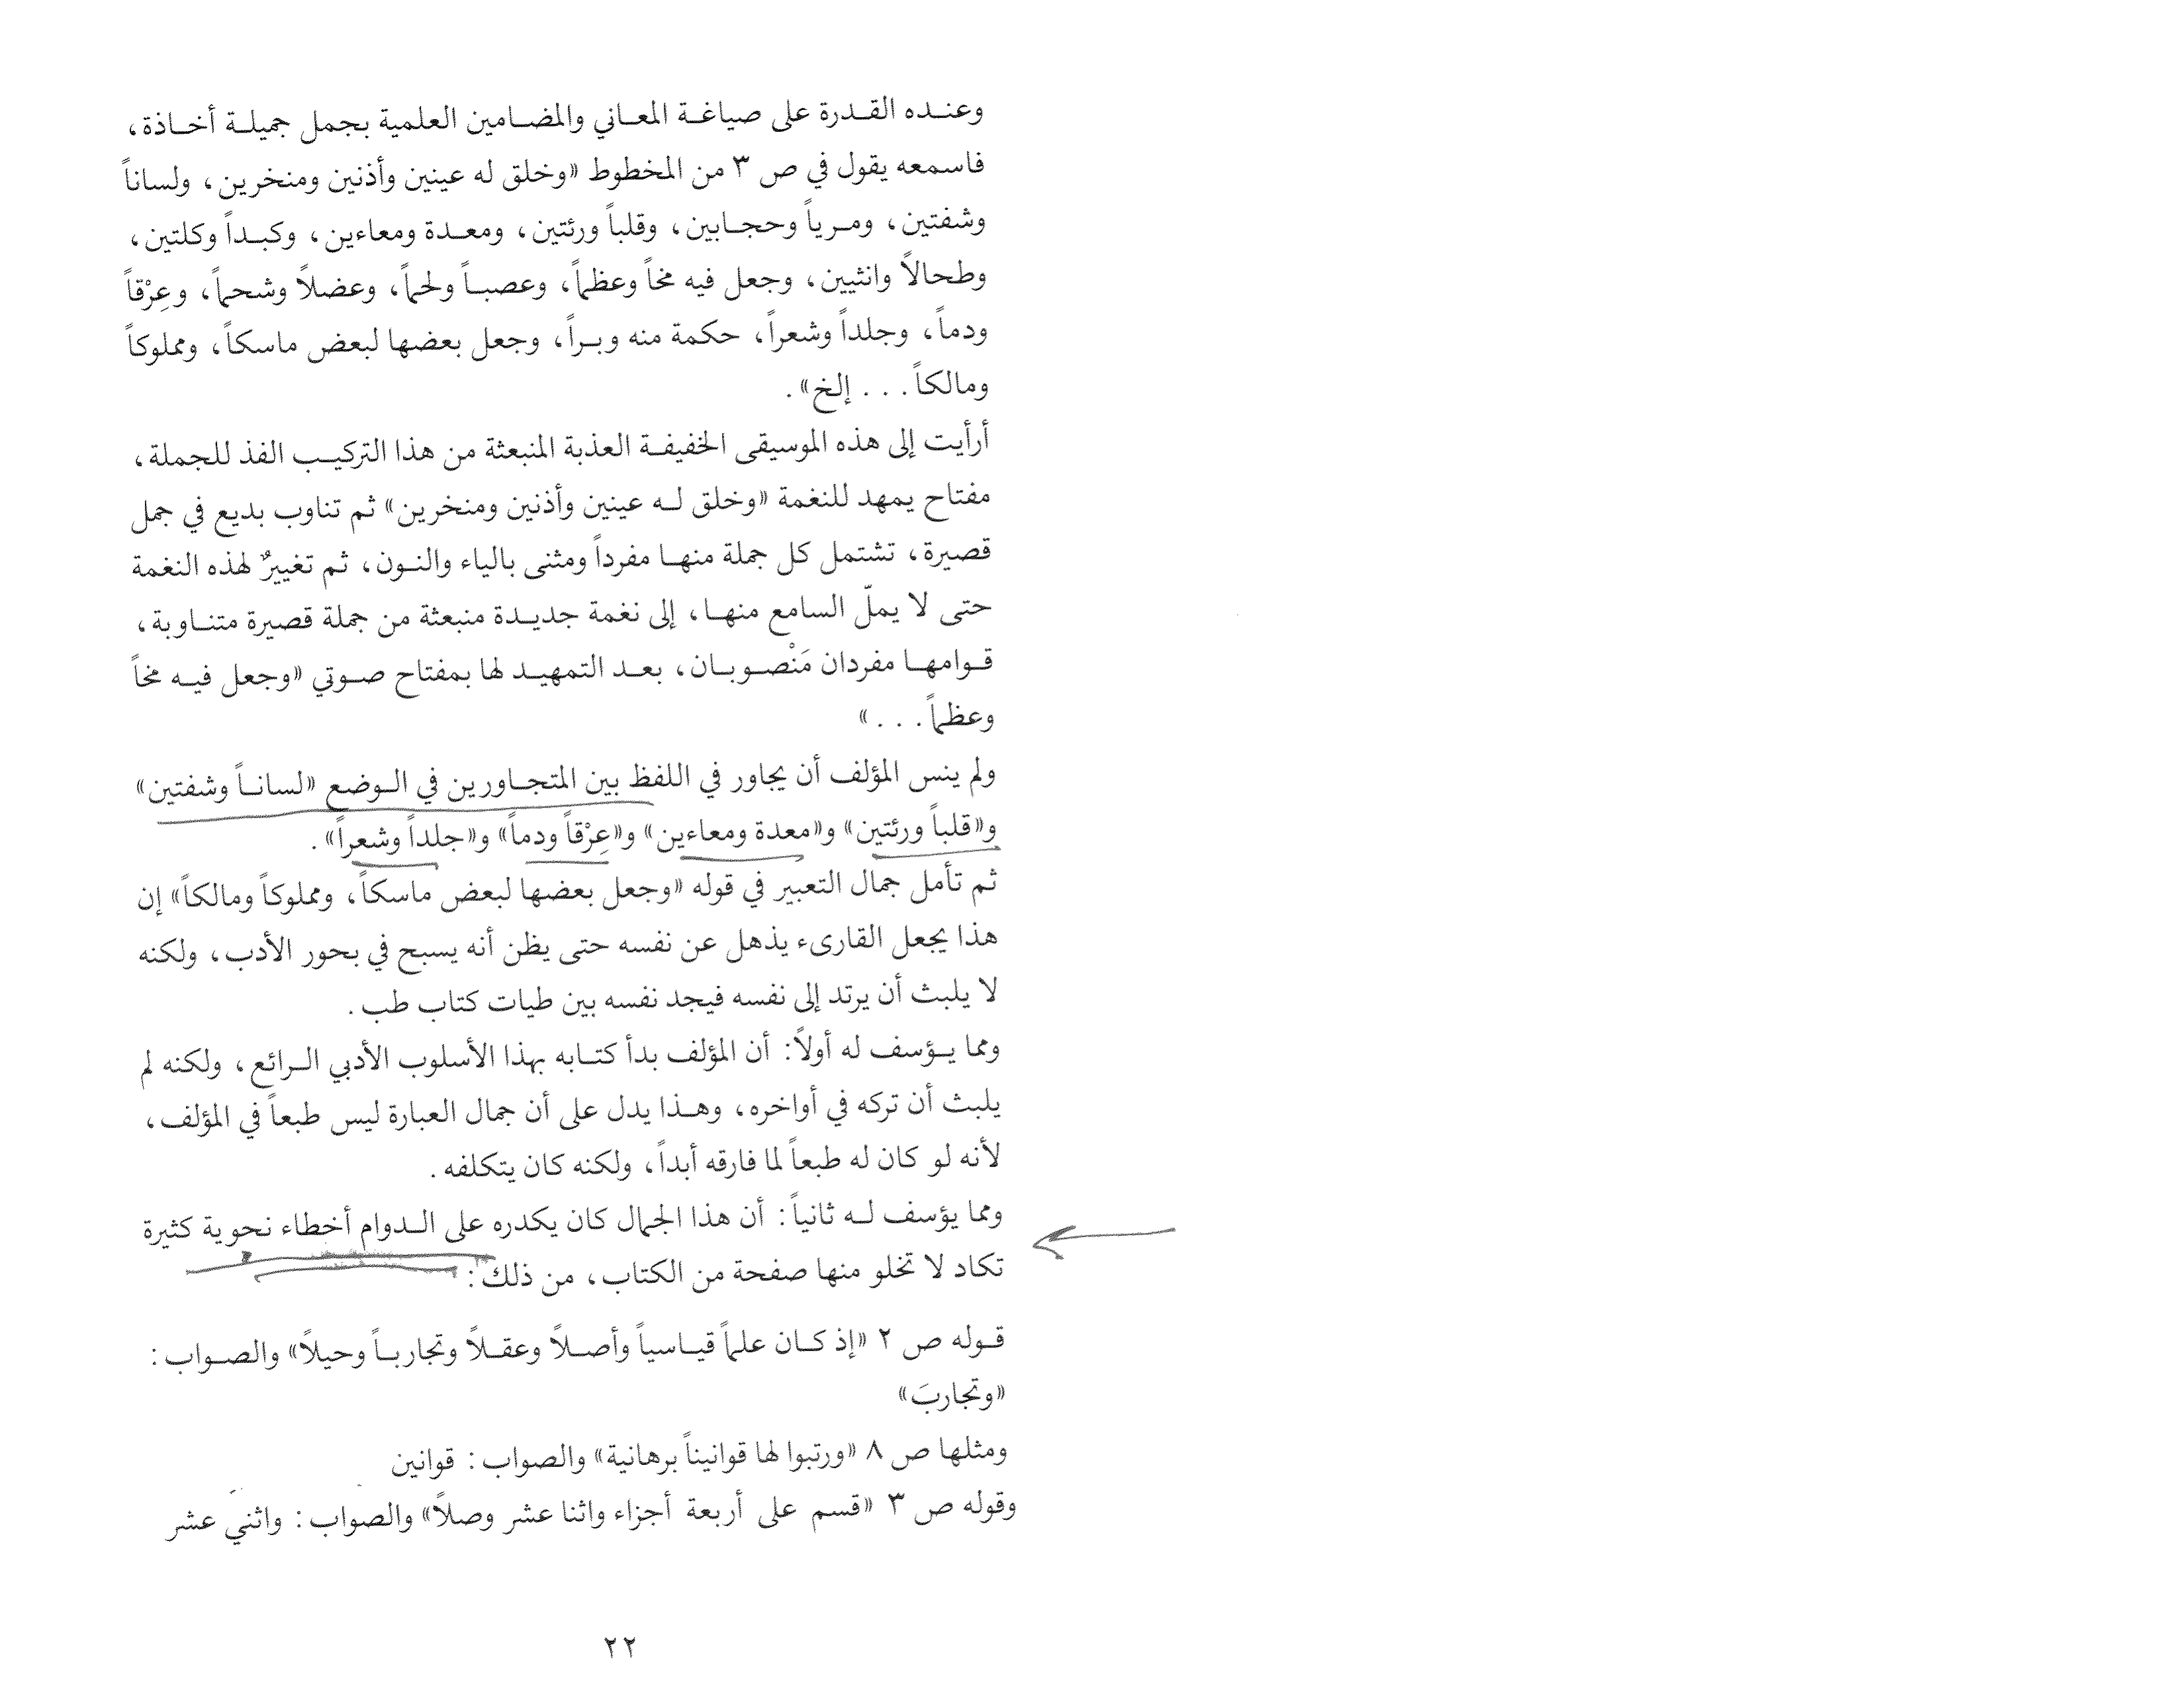 وعنده القدرة على صياغة المعاني والمضامين العلمية بجمل جميلة أخاذة،
فاسمعه يقول في ص ٣ من المخطوط «وخلق له عينين وأذنين ومنخرين، ولساناً
وشفتين، ومرياً وحجابين، وقلباً ورئتين، ومعدة ومعاءين، وكبداً وكلتين،
وطحالاً وانثيين، وجعل فيه مخاً وعظماً، وعصباً ولحماً، وعضلاً وشحماً، وعِرْقاً
ودماً، وجلداً وشعراً، حكمة منه وبراً، وجعل بعضها لبعض ماسكاً، ومملوكاً
ومالكاً... إلخ».
أرأيت إلى هذه الموسيقى الخفيفة العذبة المنبعثة من هذا التركيب الفذ للجملة،
مفتاح يمهد للنغمة «وخلق له عينين وأذنين ومنخرين» ثم تناوب بديع في جمل
قصيرة، تشتمل كل جملة منها مفرداً ومثنى بالياء والنون، ثم تغييرٌ لهذه النغمة
حتى لا يملّ السامع منها، إلى نغمة جديدة منبعثة من جملة قصيرة متناوبة،
قوامها مفردان مَنْصوبان، بعد التمهيد لها بمفتاح صوتي «وجعل فيه مخاً
وعظماً...»
ولم ينس المؤلف أن يجاور في اللفظ بين المتجاورين في الوضع «لساناً وشفتين»
و«قلباً ورئتين» و«معدة ومعاءين» و«عِرْقاً ودماً» و«جلداً وشعراً».
ثم تأمل جمال التعبير في قوله «وجعل بعضها لبعض ماسكاً، ومملوكاً ومالكاً» إن
هذا يجعل القارىء يذهل عن نفسه حتى يظن أنه يسبح في بحور الأدب، ولكنه
لا يلبث أن يرتد إلى نفسه فيجد نفسه بين طيات كتاب طب.
ومما يؤسف له أولاً: أن المؤلف بدأ كتابه بهذا الأسلوب الأدبي الرائع، ولكنه لم
يلبث أن تركه في أواخره، وهذا يدل على أن جمال العبارة ليس طبعاً في المؤلف،
لأنه لو كان له طبعاً لما فارقه أبداً، ولكنه كان يتكلفه.
ومما يؤسف له ثانياً: أن هذا الجمال كان يكدره على الدوام أخطاء نحوية كثيرة
تكاد لا تخلو منها صفحة من الكتاب، من ذلك:
قوله ص ٢ «إذ كان علماً قياسياً وأصلاً وعقلاً وتجارباً وحيلاً» والصواب:
«وتجاربَ»
ومثلها ص ٨ «ورتبوا لها قوانيناً برهانية» والصواب: قوانين
وقوله ص ٣ «قسم على أربعة أجزاء واثنا عشر وصلاً» والصواب: واثنيَ عشر
٢٢